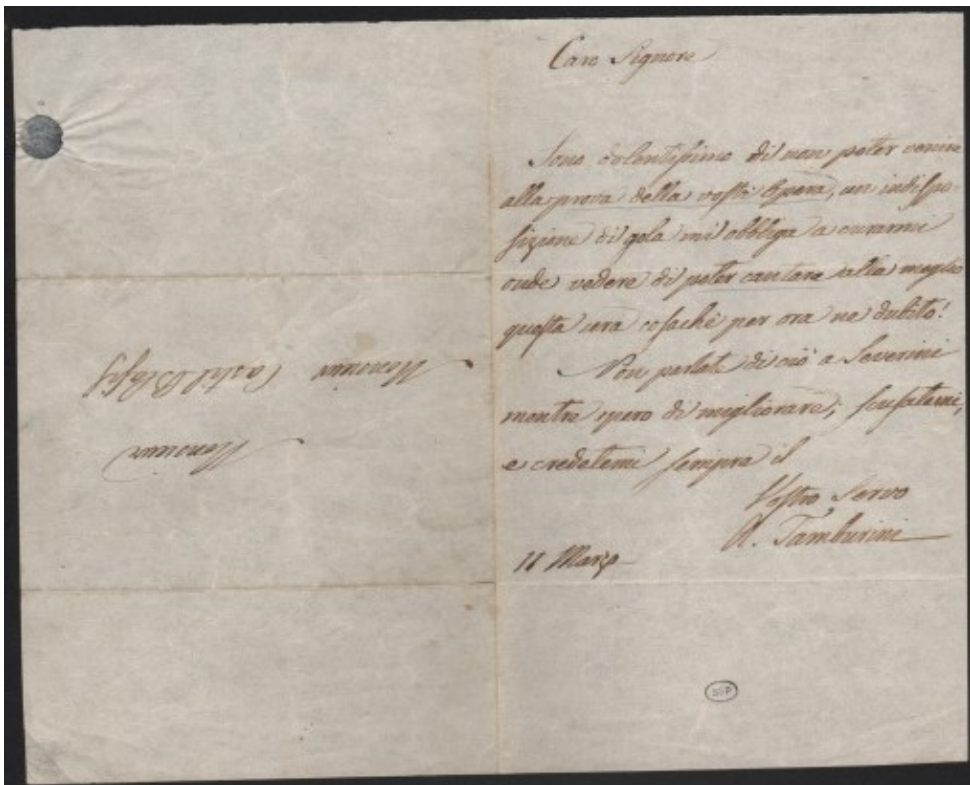 Caro Signore
Sono dolentissimo di non poter venire
alla prova della vostr Opera, un indispo-
sizione di gola mi obbliga a curarmi
onde vedere di poter cantare alla meglio
questa sera cosachè per ora ne dubito!
Non parlate di ciò a Severini
mentre spero di migliorare; scusatemi,
e credetemi sempre il
Vostro Servo
A. Tamburini
11 Marzo
Monsieur
Monsieur Castil Blaze